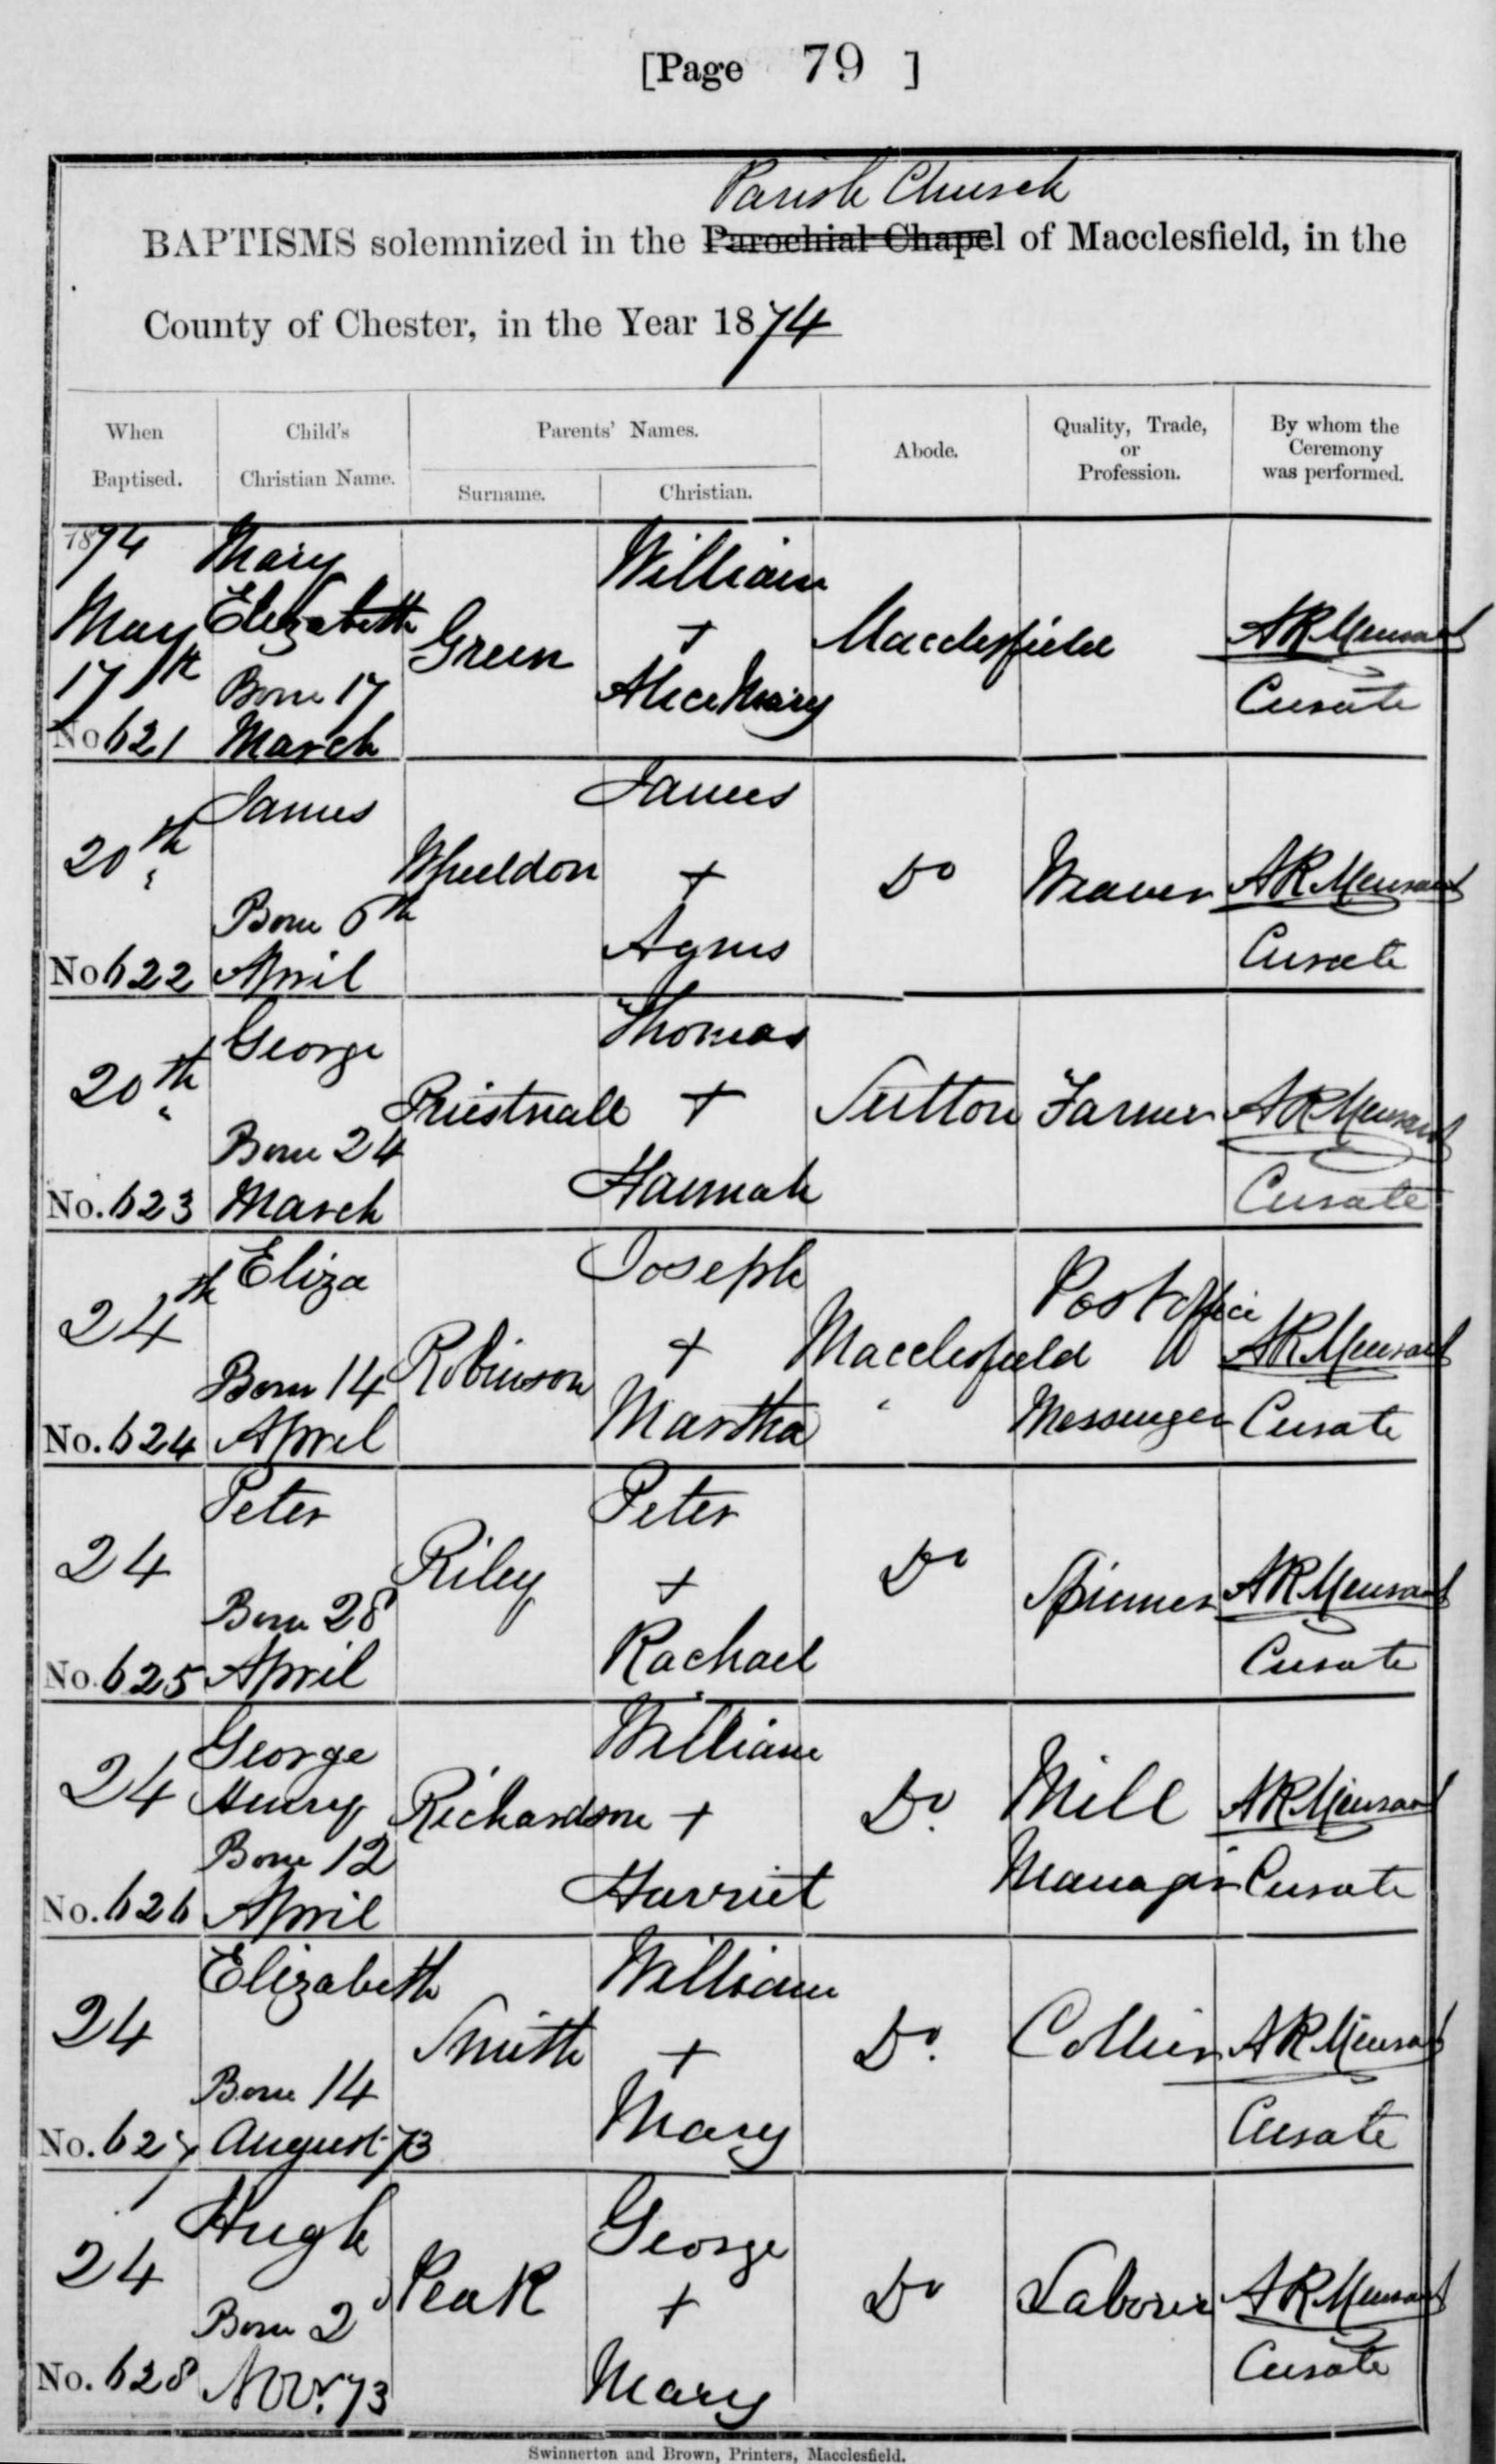 [Page 79 ]
Parish Church
BAPTISMS solemnized in the Parochial Chapel of Macclesfield, in the
County of Chester, in the Year 1874
When Baptised.
Child's Christian Name.
Parents' Names.
Surname.
Christian.
Abode.
Quality, Trade, or Profession.
By whom the Ceremony was performed.
1874
May
17th
No 621
Mary
Elizabeth
Born 17
March
Green
William
+
Alice Mary
Macclesfield
Curate
20th "
No 622
James
Born 6th
April
Wheeldon
James
+
Agnes
Do
Weaver
Curate
20th "
No. 623
George
Born 24
March
Priestnall
Thomas
+
Hannah
Sutton
Farmer
Curate
24th
No. 624
Eliza
Born 14
April
Robinson
Joseph
+
Martha
Macclesfield
Post Office
Messenger
Curate
24
No. 625
Peter
Born 28
April
Riley
Peter
+
Rachael
Do
Spinner
Curate
24
No. 626
George
Henry
Born 12
April
Richardson
William
+
Harriet
Do.
Mill
Manager
Curate
24
No. 627
Elizabeth
Born 14
August 73
Smith
William
+
Mary
Do.
Collier
Curate
24
No. 628
Hugh
Born 2
Novr. 73
Peak
George
+
Mary
Do
Laborer
Curate
Swinnerton and Brown, Printers, Macclesfield.